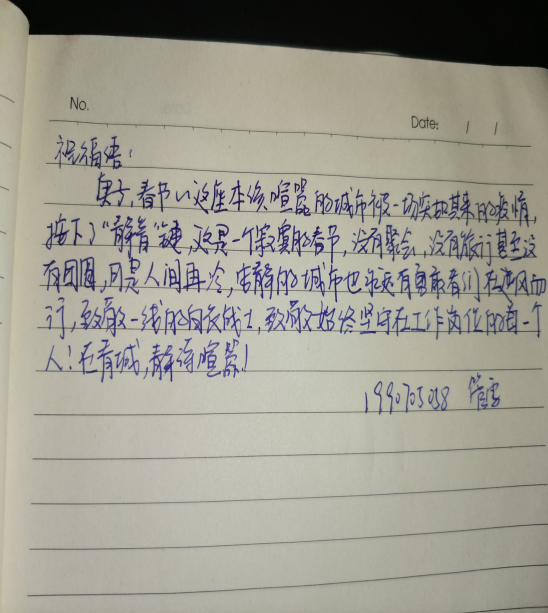 No.
Date: / /
祝福语:
庚子,春节,这座本该喧嚣的城市被一场突如其来的疫情,
按下了“静音”键,这是一个寂寞的春节,没有聚会,没有旅行甚至没
有团圆,可是人间再冷,安静的城市也永远有勇敢者们在逆风而
行,致敬一线的白衣战士,致敬始终坚守在工作岗位的每一个
人!在青城,静待喧嚣!
1990705038 管雪